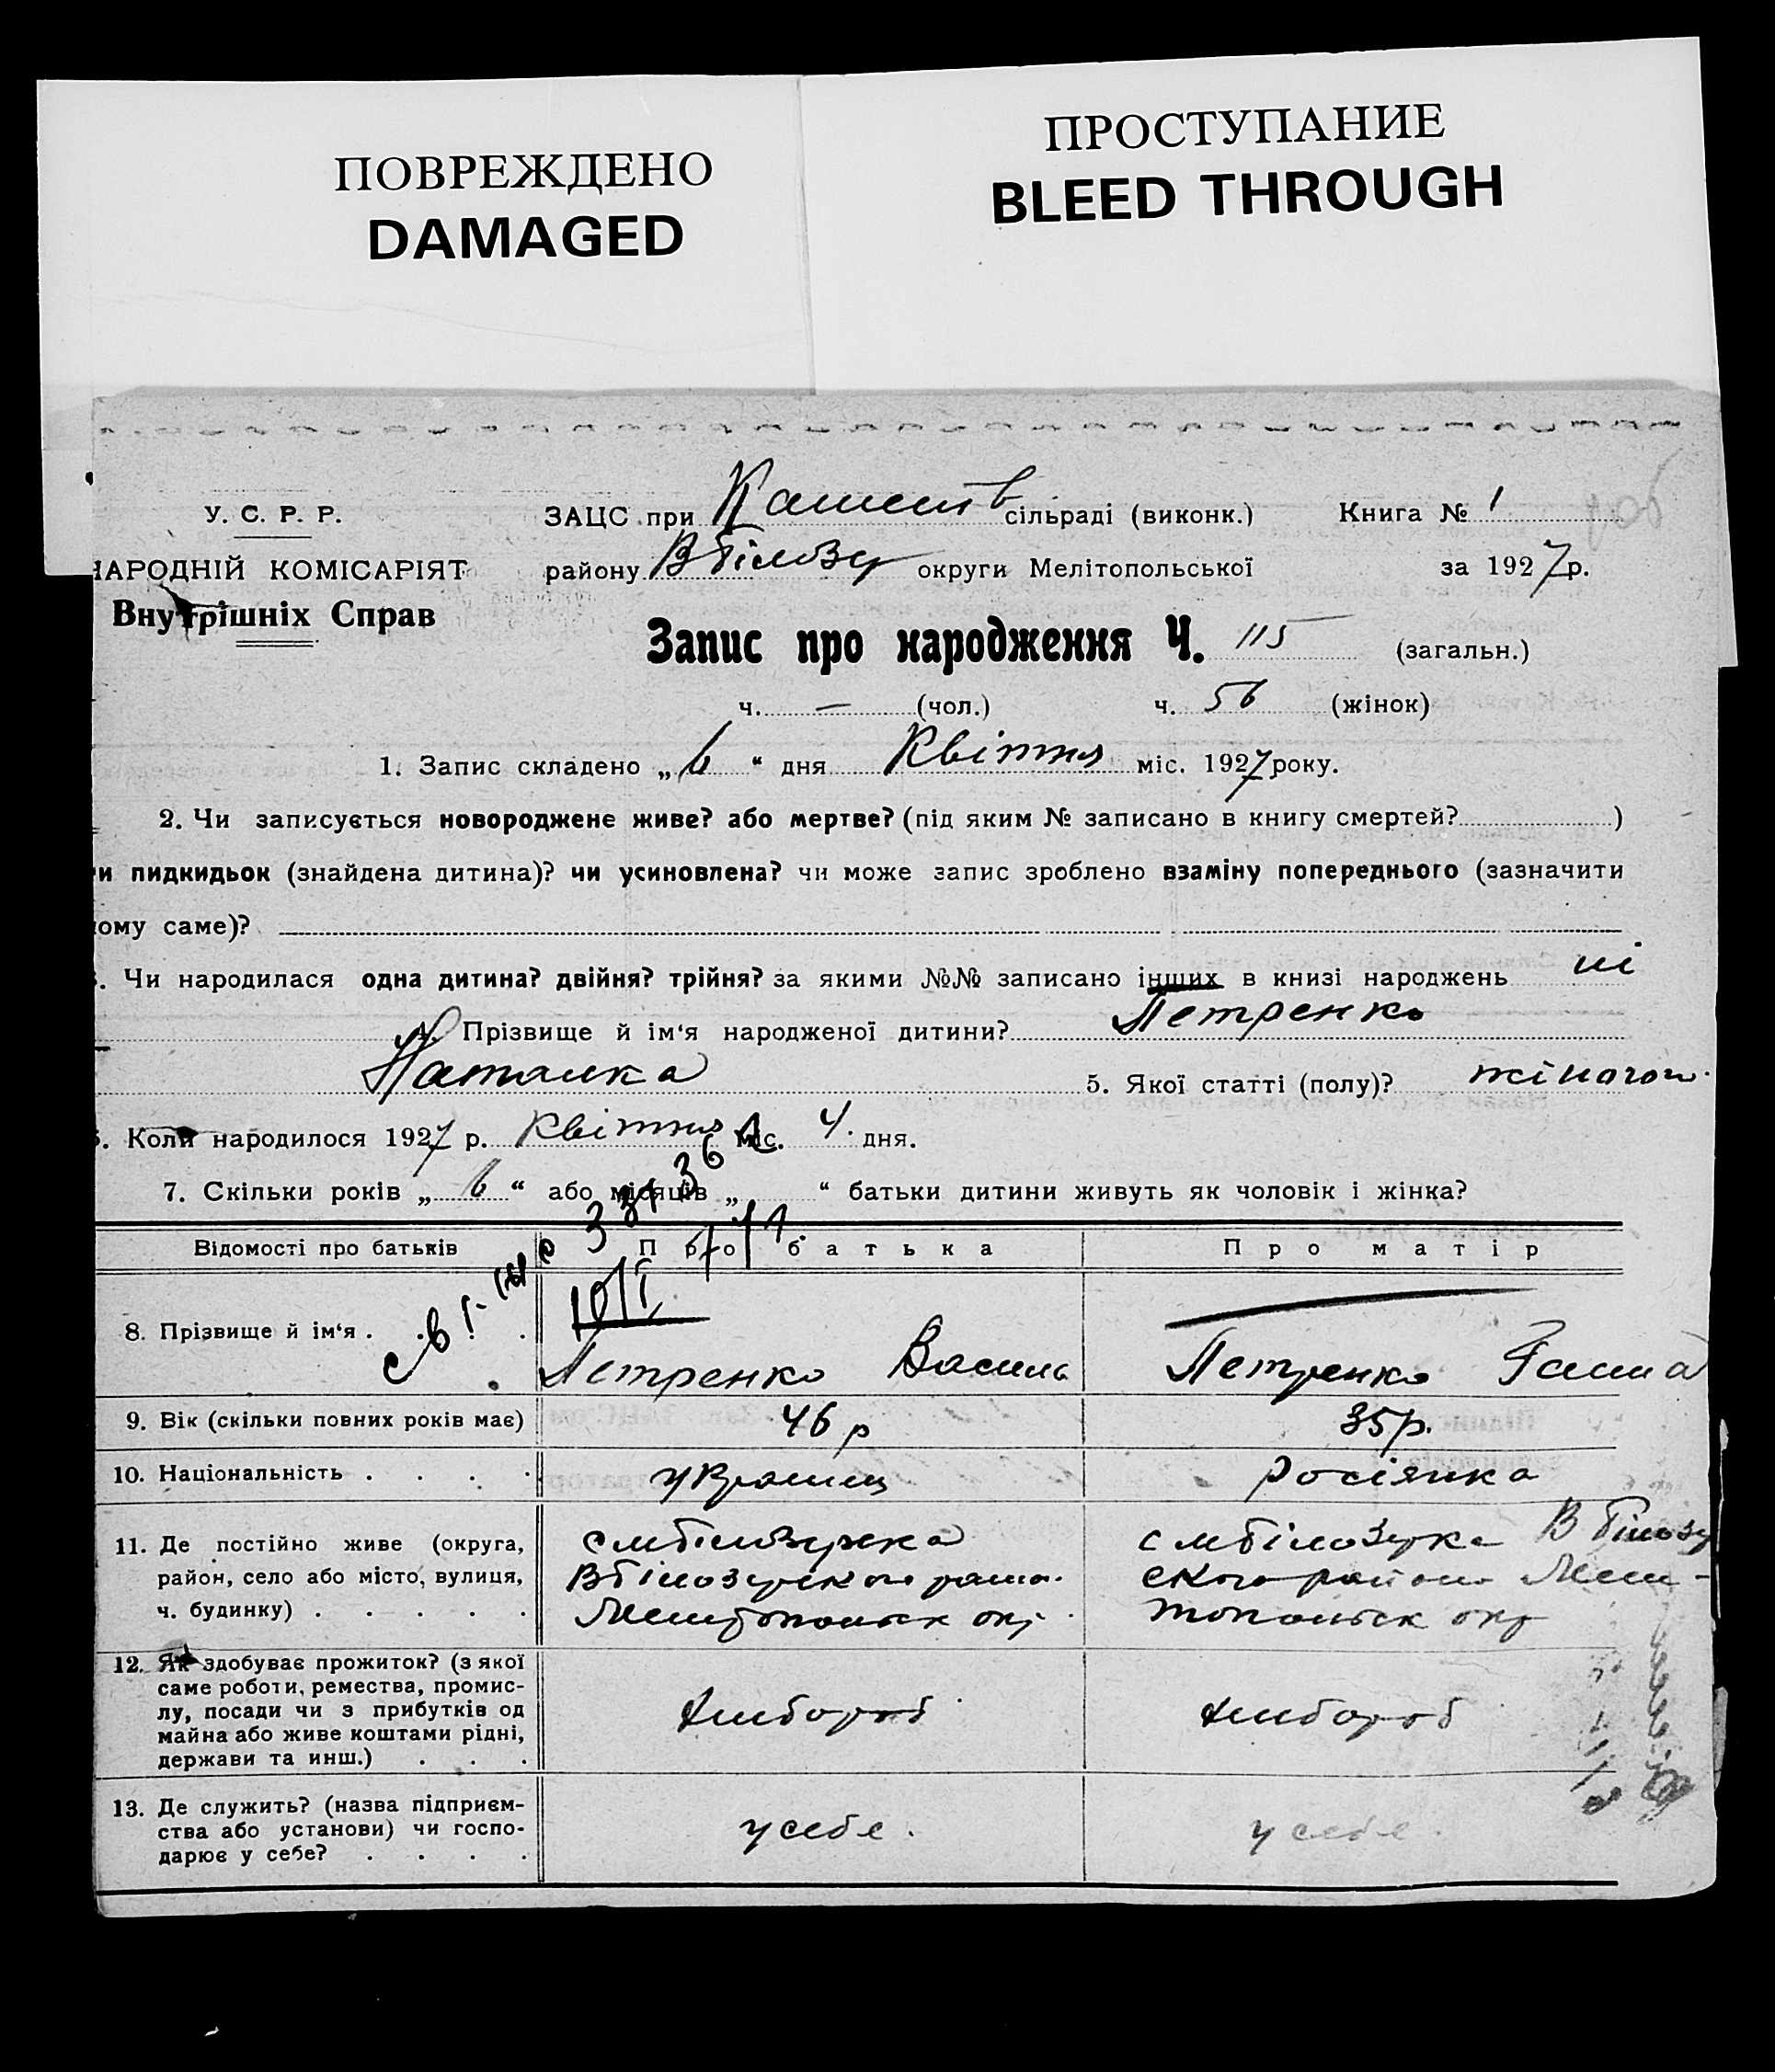 ПОВРЕЖДЕНО
DAMAGED
ПРОСТУПАНИЕ
BLEED THROUGH
У. С. Р. Р.
НАРОДНІЙ КОМІСАРІЯТ
Внутрішніх Справ
ЗАЦС при сільраді (виконк.) Книга № 1
району Вбілозу округи Мелітопольської за 1927 р.
Запис про народження Ч. 115 (загальн.)
ч. — (чол.) ч. 56 (жінок)
1. Запис складено „6“ дня Квітня міс. 1927 року.
2. Чи записується новороджене живе? або мертве? (під яким № записано в книгу смертей? )
и пидкидьок (знайдена дитина)? чи усиновлена? чи може запис зроблено взаміну попереднього (зазначити
ому саме)?
3. Чи народилася одна дитина? двійня? трійня? за якими №№ записано інших в книзі народжень ні
4. Прізвище й ім‘я народженої дитини? Петренко
Наталка 5. Якої статті (полу)? жіночої
6. Коли народилося 1927 р. Квітня міс. 4. дня.
7. Скільки років „6“ або місяців „ “ батьки дитини живуть як чоловік і жінка?
Відомості про батьків Про батька Про матір
8. Прізвище й ім‘я . Петренко Василь Петренко Ганна
9. Вік (скільки повних років має) 46 р 35 р.
10. Національність . . . . Украинц росіянка
11. Де постійно живе (округа,
район, село або місто, вулиця,
ч. будинку) . . . . .
с мбілозірка
Вбілозірськог район.
Мелітопольск окр.
с мбілозірка Вбілозу
ского району Мелі-
топольск окр
12. Як здобуває прожиток? (з якої
саме роботи, ремества, промис-
лу, посади чи з прибутків од
майна або живе коштами рідні,
держави та инш.) . . .
хлібороб
хлібороб
13. Де служить? (назва підприєм-
ства або установи) чи госпо-
дарює у себе? . . . .
у себе.
у себе.